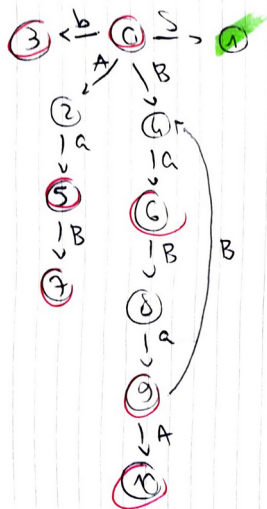 3 b 0 S 1
A B
2 4
a a
5 6
B B B
7 8
a
9
A
10